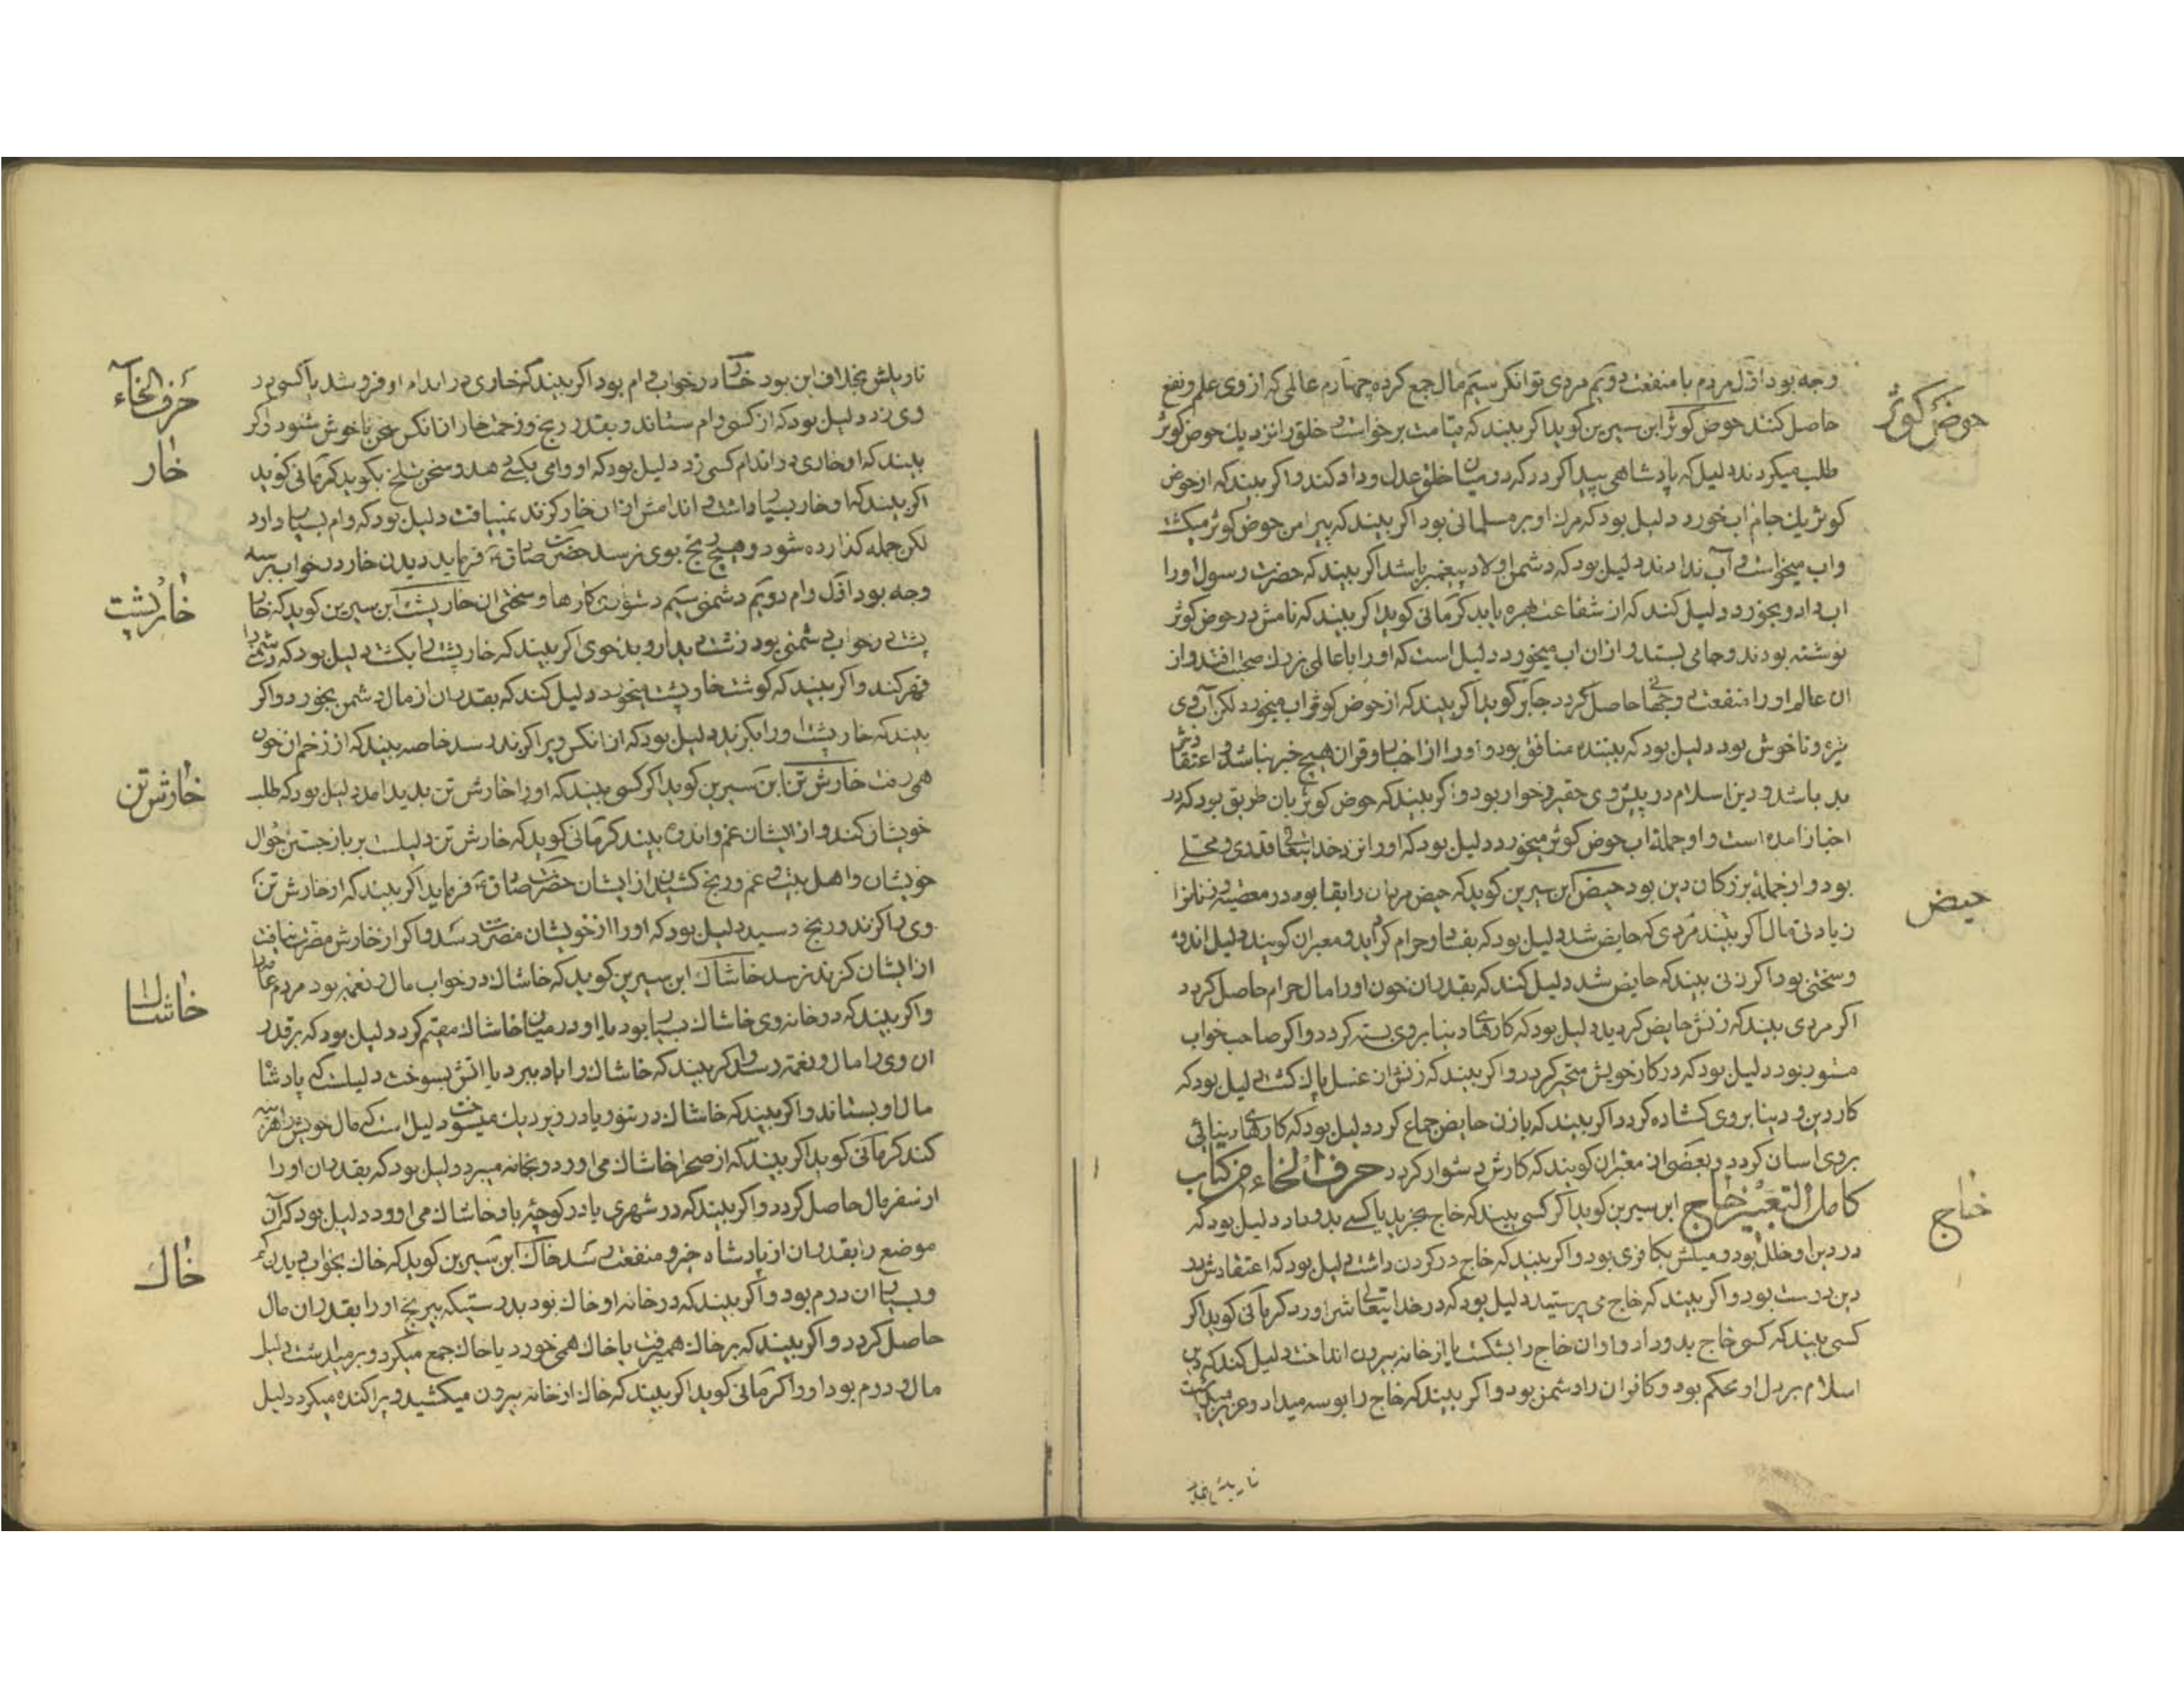 حوض کوثر
وجه بود اوّل مردم با منفعت دویم مردی توانکر سیم مال جمع کرده چهارم عالمی که از وی علم و نفع
حاصل کنند حوض کوثر ابن سیرین کوید اکر بیند که قیامت برخواست و خلق را نزدیك حوض کوثر
طلب میکردند دلیل که پادشاهی پیدا کردد که در میان خلق عدل و داد کند و اکر بیند که از حوض
کوثر یك جام اب خورد دلیل بود که مرك او بر مسلمانی بود اکر بیند که پیرامن حوض کوثر میکشت
واب میخواست و آب ندادند دلیل بود که دشمن اولاد پیغمبر باشد اکر بیند که حضرت رسول اورا
اب داد و بخورد دلیل کند که از شفاعت بهره یابد کرمانی کوید اکر بیند که نامش در حوض کوثر
نوشته بودند و جامی بستد و ازان اب میخورد دلیل است که اورا با عالمی بزرك صحبت افتد و از
ان عالم اورا منفعت و حاصل کردد جابر کوید اکر بیند که از حوض کوثر اب میخورد لکن آب وی
تیره و ناخوش بود دلیل بود که بیننده منافق بود و اورا از اخبار و قران هیچ خبر نباشد و اعتقادش
بد باشد و دین اسلام در پیش وی حقیر و خوار بود و اکر بیند که حوض کوثر بان طریق بود که در
اخبار امده است و او جملهٔ اب حوض کوثر میخورد دلیل بود که اورا نزد خدایتعالی قدری و محلی
حیض
بود و از جملهٔ بزرکان دین بود حیض ابن سیرین کوید که حیض مردان را بقا بود در معصیه و زنانرا
زیادتی مال اکر بیند مردی که حایض شد دلیل بود که بفساد و حرام کراید و معبران کویند دلیل اندوه
و سختی بود اکر زنی بیند که حایض شد دلیل کند که بقدر ان خون اورا مال حرام حاصل کردد
اکر مردی بیند که زنش حایض کردید دلیل بود که کارهای دنیا بر وی بسته کردد و اکر صاحب خواب
مستور بود دلیل بود که در کار خویش متحیر کردد و اکر بیند که زنش ان غسل پاك کشت دلیل بود که
کار دین و دنیا بر وی کشاده کردد اکر بیند که با زن حایض جماع کرد دلیل بود که کارهای دنیائی
بروی اسان کردد و بعضی از معبران کویند که کارش دشوار کردد حرف الخاء من کتاب
خاج
کامل التعبیر خاج ابن سیرین کوید اکر کسی بیند که خاج بخرید یا کسی بدو داد دلیل بود که
در دین او خلل بود و میلش بکافری بود و اکر بیند که خاج در کردن داشت دلیل بود که اعتقادش بد
دین درست بود و اکر بیند که خاج می پرستید دلیل بود که در خدایتعالی شر اورد کرمانی کوید اکر
کسی بیند که کسی خاج بدو داد و او ان خاج را بشکست یا از خانه بیرون انداخت دلیل کند که دین
اسلام بر دل او محکم بود و کافران را دشمن بود و اکر بیند که خاج را بوسه میداد و عزیز میداشت
تاویلش بخلاف
حرف الخاء
تاویلش بخلاف این بود خار در خواب وام بود اکر بیند که خاری در اندام او فرو شد یا کسی در
خار
وی زد دلیل بود که از کسی وام ستاند و بقدر رنج و زحمت خار از انکس سخن ناخوش شنود و اکر
بیند که او خاری در اندام کسی زد دلیل بود که او وامی بکسی دهد و سخن تلخ بکوید کرمانی کوید
اکر بیند که او خار بسیار داشت و اندامش از ان خار کزند نمییافت دلیل بود که وام بسیار دارد
لکن جمله کذارده شود و هیچ رنج بوی نرسد حضرت صادق ع فرماید دیدن خار در خواب بر سه
خارپشت
وجه بود اوّل وام دویم دشمنی سیم دشواری کارها و سختی ان خارپشت ابن سیرین کوید که خار
پشت در خواب دشمنی بود زشت دیدار و بدخوی اکر بیند که خارپشت را بکشت دلیل بود که دشمن را
قهر کند و اکر بیند که کوشت خارپشت میخورد دلیل کند که بقدر ان از مال دشمن بخورد و اکر
بیند که خارپشت اورا بکزید دلیل بود که از انکس ویرا کزند رسد خاصه بیند که از زخم ان خون
خارش تن
همی رفت خارش تن ابن سیرین کوید اکر کسی بیند که اورا خارش تن پدید امد دلیل بود که طلب
خویشان کند و از ایشان غم و اندوه بیند کرمانی کوید که خارش تن دلیلست بر باز جستن احوال
خویشان و اهل بیت و غم و رنج کشیدن از ایشان حضرت صادق ع فرماید اکر بیند که از خارش تن
وی را کزند و رنج رسید دلیل بود که اورا از خویشان مضرت رسد و اکر از خارش مضرت نیافت
خاشاك
از ایشان کزند نرسد خاشاك ابن سیرین کوید که خاشاك در خواب مال و نعمة بود مردم عام را
و اکر بیند که در خانه وی خاشاك بسیار بود یا او در میان خاشاك مقیم کردد دلیل بود که بر قدر
ان وی را مال و نعمة رسد و اکر بیند که خاشاك را باد ببرد یا اتش بسوخت دلیلست که پادشاه
مال او بستاند و اکر بیند که خاشاك در تنور یا در زیر دیك میسوخت دلیل است که مال خویش را هزینه
کند کرمانی کوید اکر بیند که از صحرا خاشاك می اورد و بخانه میبرد دلیل بود که بقدر ان اورا
از سفر مال حاصل کردد و اکر بیند که در شهری یا در کوچه باد خاشاك می اورد دلیل بود که ان
خاك
موضع را بقدر ان از پادشاه خیر و منفعت رسد خاك ابن سیرین کوید که خاك بخواب دیدن کم
و بسیار ان درم بود و اکر بیند که در خانه او خاك بود بدرستیکه بیرنج اورا بقدر ان مال
حاصل کردد و اکر بیند که بر خاك همیرفت یا خاك همی خورد یا خاك جمع میکرد و بر میداشت دلیل
مال و درم بود اورا کرمانی کوید اکر بیند که خاك از خانه بیرون میکشید و پراکنده میکرد دلیل